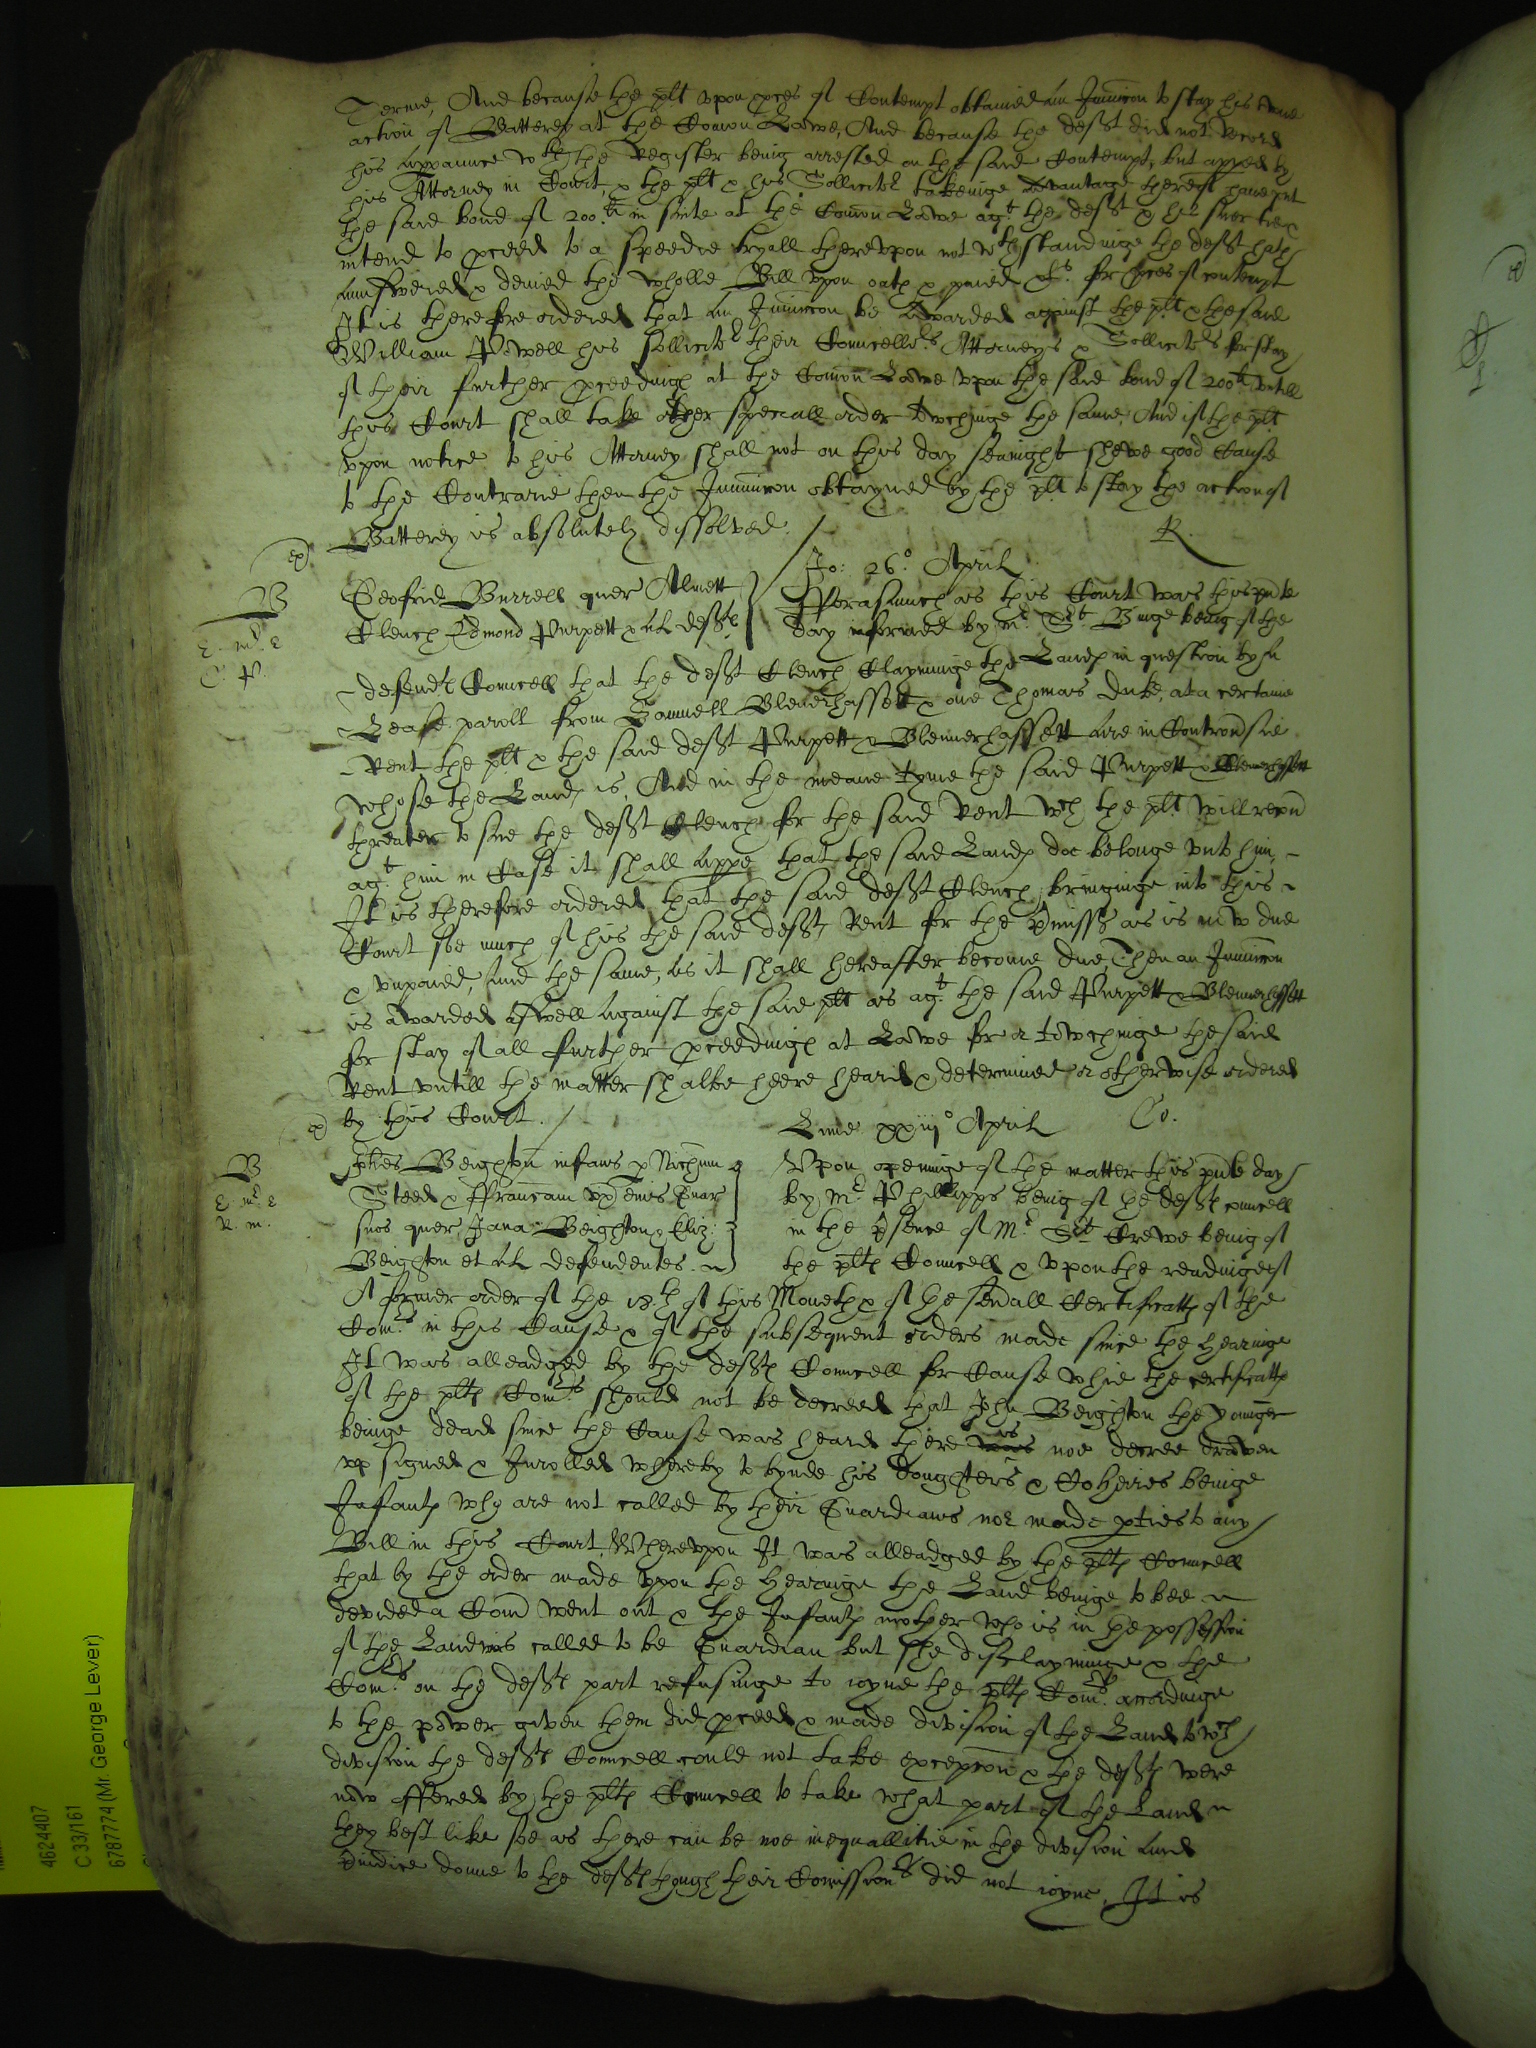 Terme, And because the plt vpon pces of Contempt obtained an Iniunccon to stay his owne
action of Batterey at the Comon Lawe, And because the deft did not Record
his appaunce wth the Register being arrested on the said Contempt, but appeed by
his Attorney in Court, & the plt & his Sollicitr takeinge advantage thereof haue put
the said bond of 200li in suite at the Comon Lawe agt the deft & his suerties &
intend to pceed to a speedie tryall therevpon not wthstandinge the deft hath
annswered & denied the wholle Bill vpon oath & paied for pces of contempt
It is therefore ordered that an Iniunccon be awarded against the plt & the said
William Powell his sollicitr their Councellrs Attorneys & Sollicitrs for stay
of their further pceedings at the Comon Lawe vpon the said bond of 200li vntill
this Court shall take other speciall order towchinge the same, And if the plt
vpon notice to his Attorney shall not on this day seavnight shewe good Cause
to the Contrarie then the Iniunccon obtayned by the plt to stay the action of
Batterey is absolutely dissolved.
R.
Jo: 26o April
ep
B
Geofrid Burrell quer Alnett
Clench Edmond Purpett & al defts
Fforasmuch as this Court was this pnte
day informed by mr Sit Binge being of the
defendts Councell that the deft Clench Clayminge the Lands in question by a
Lease paroll from Samuell Blenerhassett & one Thomas Duke, at a certaine
Rent the plt & the said deft Purpett & Blennerhassett are in Controvdsie
whose the Lands is, And in the meane tyme the said Purpett & Blenerhassett
threaten to sue the deft Clench for the said Rent wch the plt will recovd
agt him in Case it shall appe that the said Lands doe belonge vnto him,
It is therefore ordered that the said deft Clench bringinge into this
Court soe much of his the said defts Rent for the pmisses as is now due
& vnpaied, And the same, as it shall hereafter become due, Then an Iniunccon
is awarded aswell against the said plt as agt the said Purpett & Blennerhassett
for stay of all further pceedings at Lawe for or towchinge the said
Rent vntill the matter shalbe heere heard & determined or otherwise ordered
by this Court.
Co.
ep
Lune xxiijo April
B
R. m.
Beighton infans p Nichum
Steed & Ffranciam vx eius Guar
suos quer, Jana Beighton & Eliz:
Beighton et al defendentes.
Vpon openinge of the matter this pnte day
by mr Phillipps being of the defts councell
in the psence of Mr Sit Crewe being of
the plts Councell & vpon the readinge of
A former order of the 18th of this Moneth & of the sevdall Certificatts of the
Comrs in this Cause & of the subsequent orders made since the hearinge
It was alleadged by the defts Councell for Cause whie the certificatts
of the plts Comrs should not be decreed that John Beighton the younger
beinge dead since the Cause was heard there is noe decree drawen
vp signed & Inrolled whereby to bynde his doughters & Coheires beinge
Infants why are not called by their Guardians nor made pties to any
Bill in this Court, Wherevpon It was alleadged by the plts Councell
that by the order made vpon the hearinge the Land beinge to bee
devided a Comn went out & the Infants mother who is in the possession
of the Land was called to be Guardian but she disclayminge & the
Comrs on the defts part refusinge to ioyne the plts Comrs accordinge
to the power given them did pceed & made division of the Land to wch
division the defts Councell could not take excepcon & the defts were
now offered by the plts Councell to take what part of the Land
they best like soe as there can be noe inequallitie in the division and
piudice donne to the defts though their Comissionrs did not ioyne, It is
4624407
C 33/161
6787774 (Mr. George Lever)